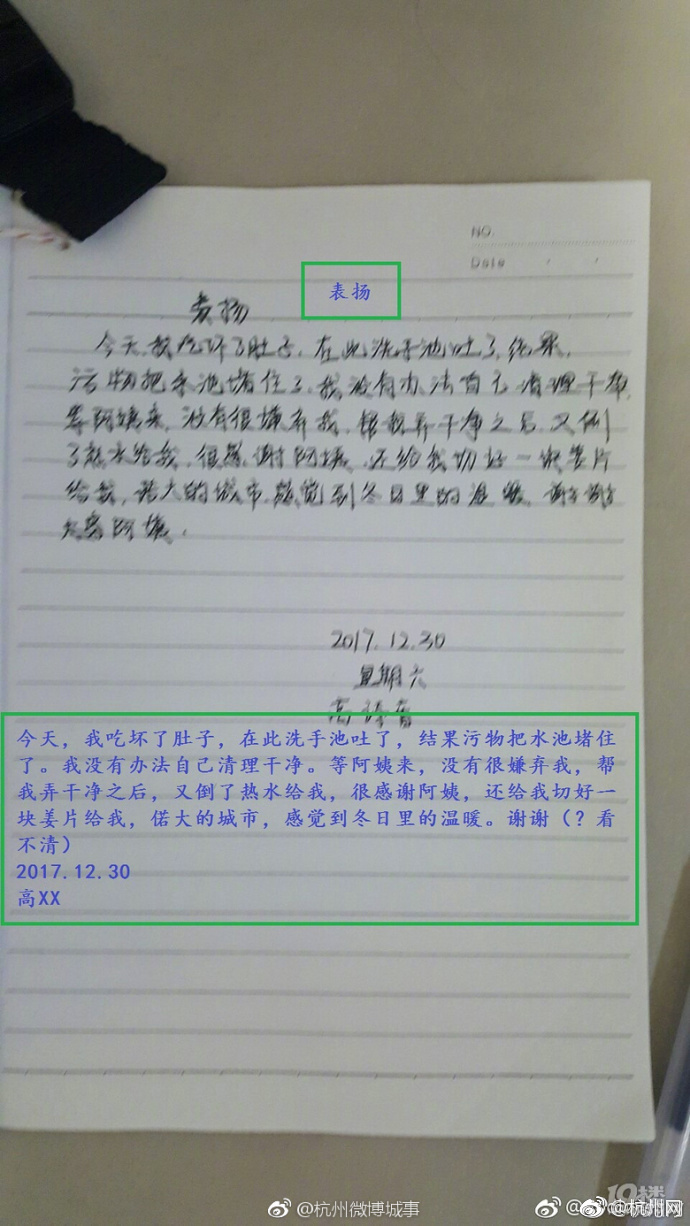 NO.
Date
表扬
表扬
今天,我吃坏了肚子,在此洗手池吐了,结果,
污物把水池堵住了,我没有办法自己清理干净,
等阿姨来,没有很嫌弃我,帮我弄干净之后,又倒
了热水给我,很感谢阿姨,还给我切好一块姜片
给我,偌大的城市,感觉到冬日里的温暖,谢谢
阿姨.
2017.12.30
星期六
高
今天,我吃坏了肚子,在此洗手池吐了,结果污物把水池堵住
了。我没有办法自己清理干净。等阿姨来,没有很嫌弃我,帮
我弄干净之后,又倒了热水给我,很感谢阿姨,还给我切好一
块姜片给我,偌大的城市,感觉到冬日里的温暖。谢谢(?看
不清)
2017.12.30
高XX
10楼
@杭州微博城事
@杭州网